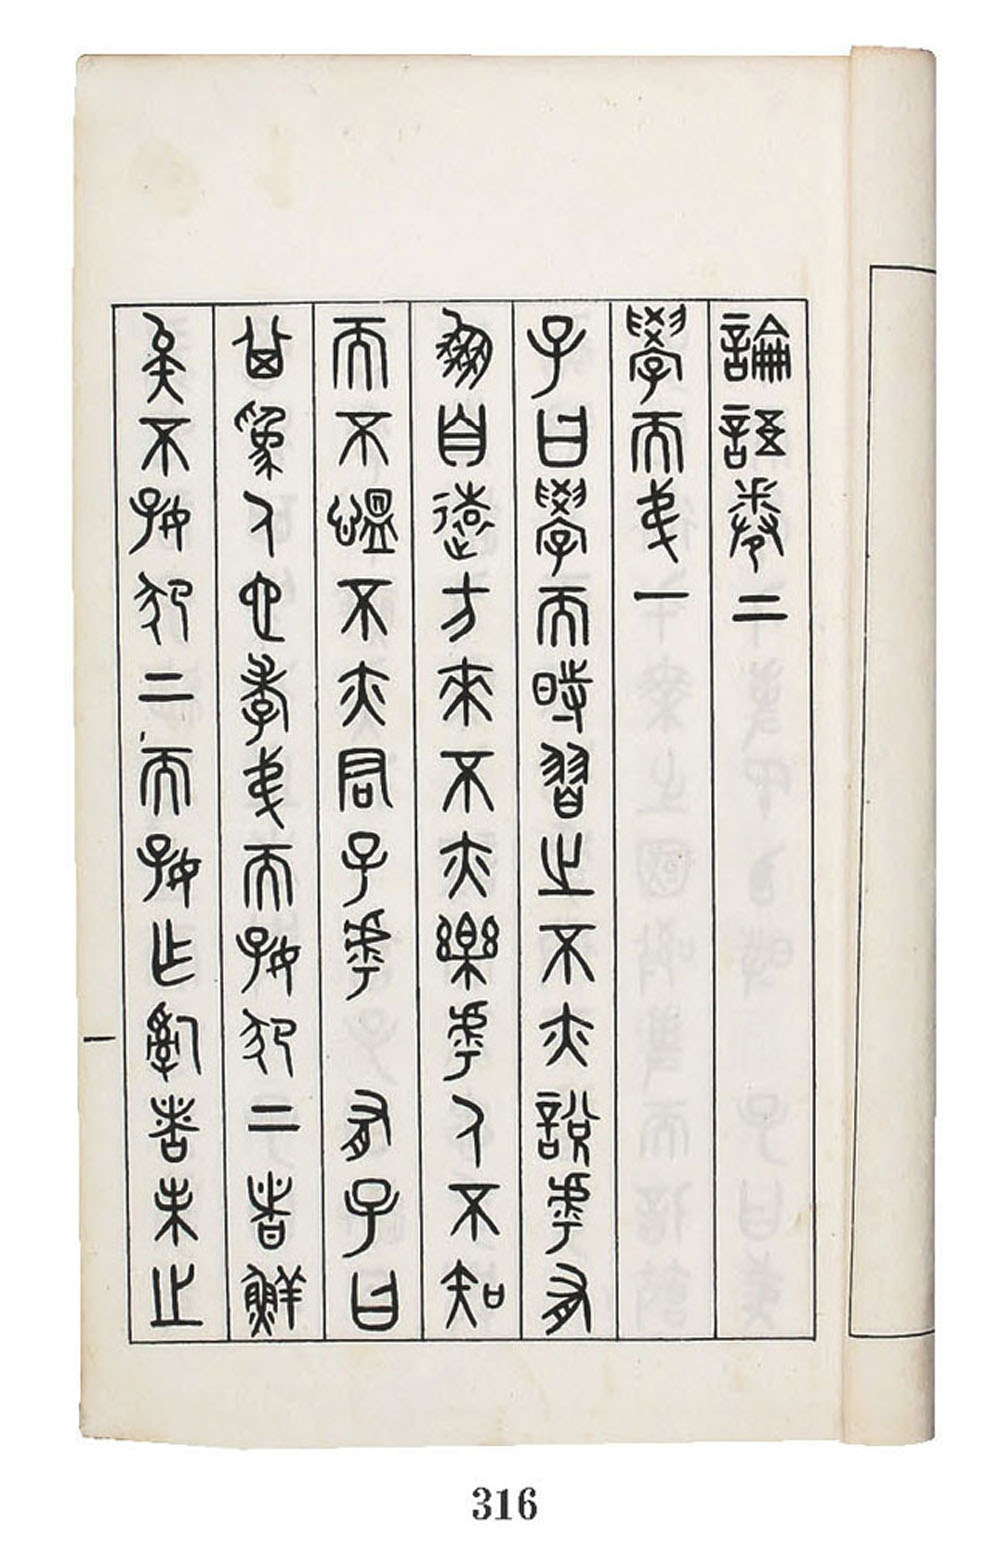 論語卷上
學而弟一
子曰學而時習之不亦說乎有
朋自遠方來不亦樂乎人不知
而不愠不亦君子乎　有子曰
其為人也孝弟而好犯上者鮮
矣不好犯上而好作亂者未之
一
316